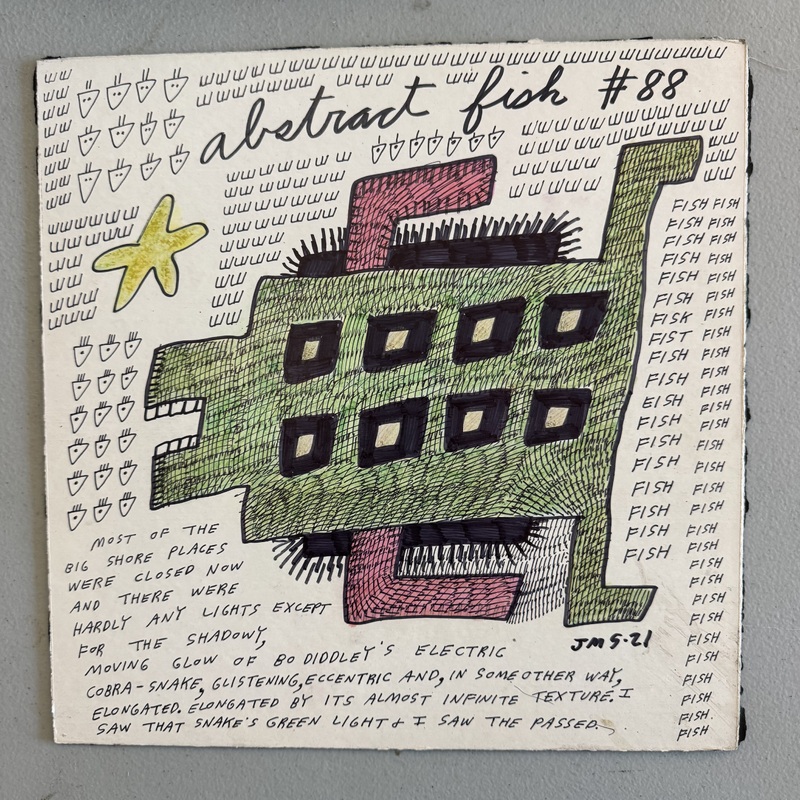 abstract fish #88
FISH FISH
FISH FISH
FISH FISH
FISH FISH
FISH FISH
FISH FISH
FISK FISH
FIST FISH
FISH FISH
FISH FISH
EISH FISH
FISH FISH
FISH FISH
FISH FISH
FISH FISH
FISH FISH
FISH FISH
FISH FISH
FISH
FISH
FISH
FISH
FISH
FISH
FISH
FISH
FISH.
FISH
MOST OF THE
BIG SHORE PLACES
WERE CLOSED NOW
AND THERE WERE
HARDLY ANY LIGHTS EXCEPT
FOR THE SHADOWY,
MOVING GLOW OF BO DIDDLEY'S ELECTRIC
COBRA-SNAKE, GLISTENING, ECCENTRIC AND, IN SOME OTHER WAY,
ELONGATED. ELONGATED BY ITS ALMOST INFINITE TEXTURE. I
SAW THAT SNAKE'S GREEN LIGHT & I SAW THE PASSED.
JMS-21